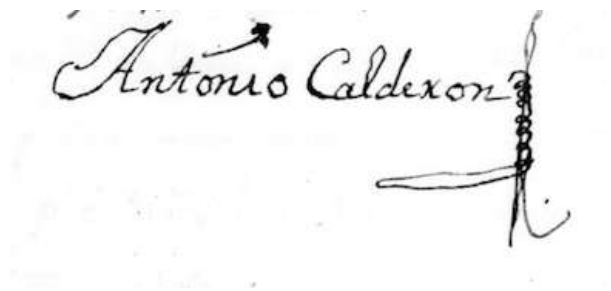 Antonio Calderon